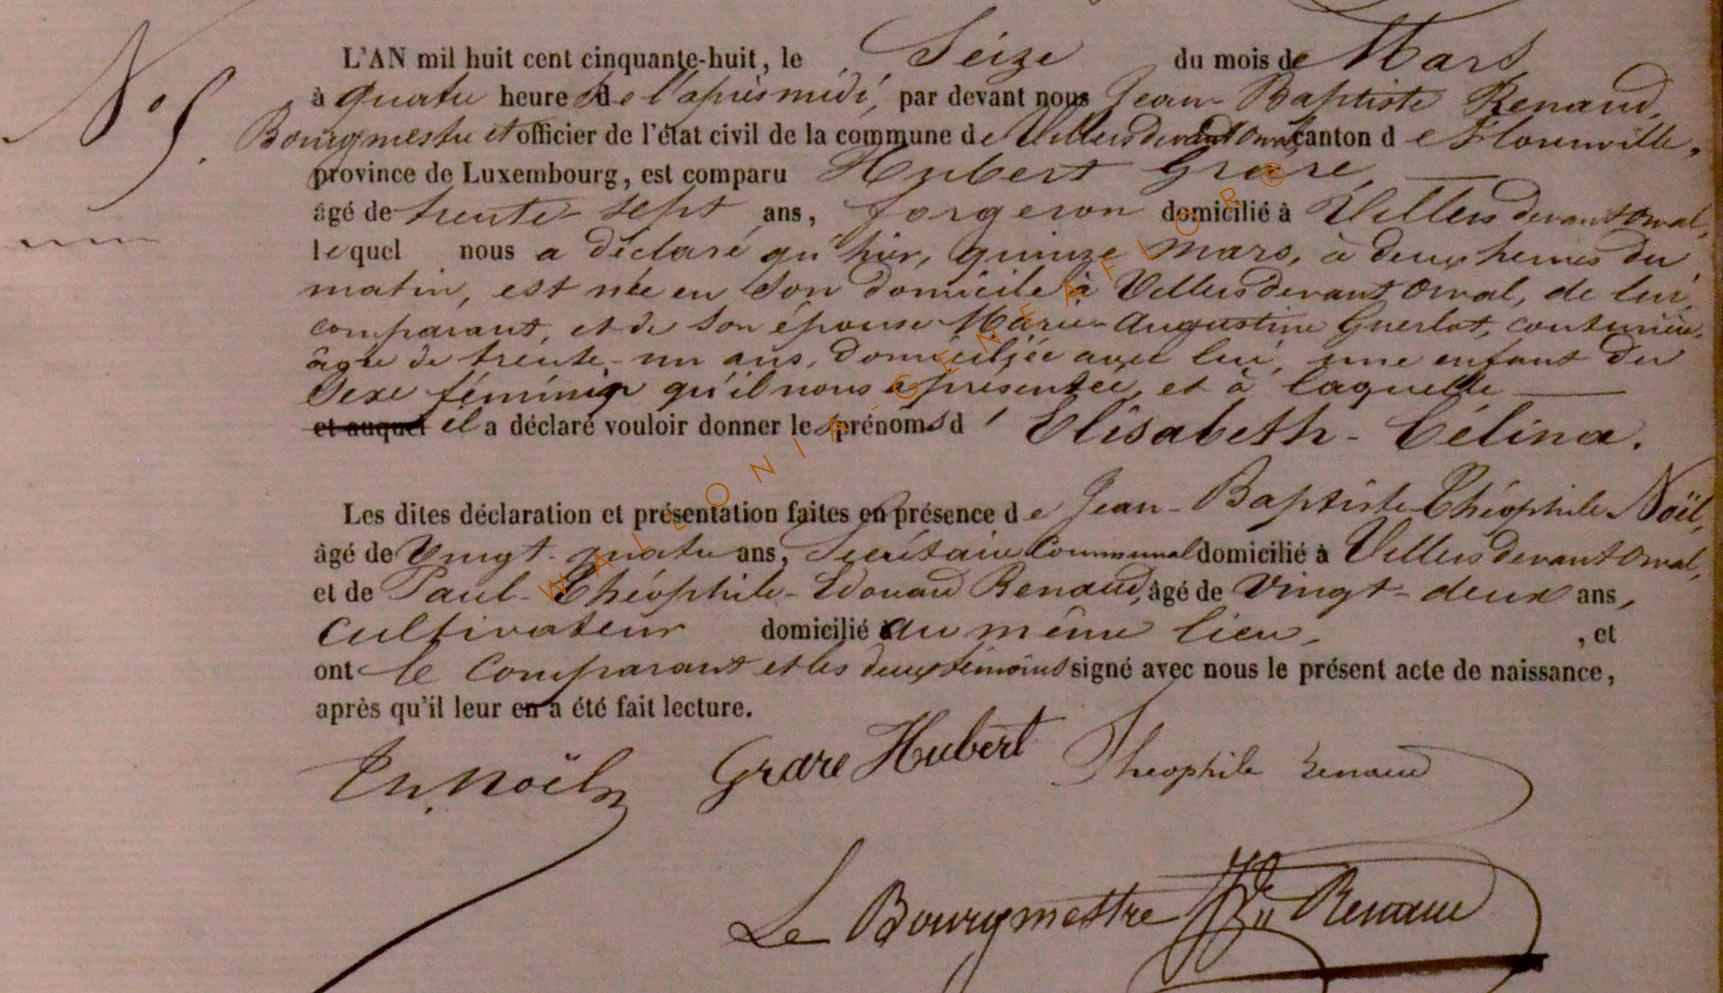 L'AN mil huit cent cinquante-huit, le Seize du mois de Mars
N° 5.
à quatre heures de l'après midi, par devant nous Jean-Baptiste Renaud,
Bourgmestre et officier de l'état civil de la commune de Villers devant Orval canton de Florenville,
province de Luxembourg, est comparu Hubert Grare,
âgé de trente-sept ans, forgeron domicilié à Villers devant Orval,
lequel nous a déclaré qu'hier, quinze mars, à deux heures du
matin, est née en son domicile à Villers devant Orval, de lui
comparant, et de son épouse Marie-Augustine Guerlot, couturière,
âgée de trente-un ans, domiciliée avec lui, une enfant du
Sexe féminin qu'il nous a présentée, et à laquelle
et auquel il a déclaré vouloir donner les prénoms d'Elisabeth-Célina.
Les dites déclaration et présentation faites en présence de Jean-Baptiste Théophile Noël,
âgé de Vingt-quatre ans, Secrétaire Communal domicilié à Villers devant Orval,
et de Paul-Théophile-Edouard Renaud, âgé de Vingt-deux ans,
Cultivateur domicilié au même lieu, , et
ont le Comparant et les deux témoins signé avec nous le présent acte de naissance,
après qu'il leur en a été fait lecture.
Th. Noël Grare Hubert Théophile Renaud
Le Bourgmestre Renaud
WALLONIA GENEAFLOR®